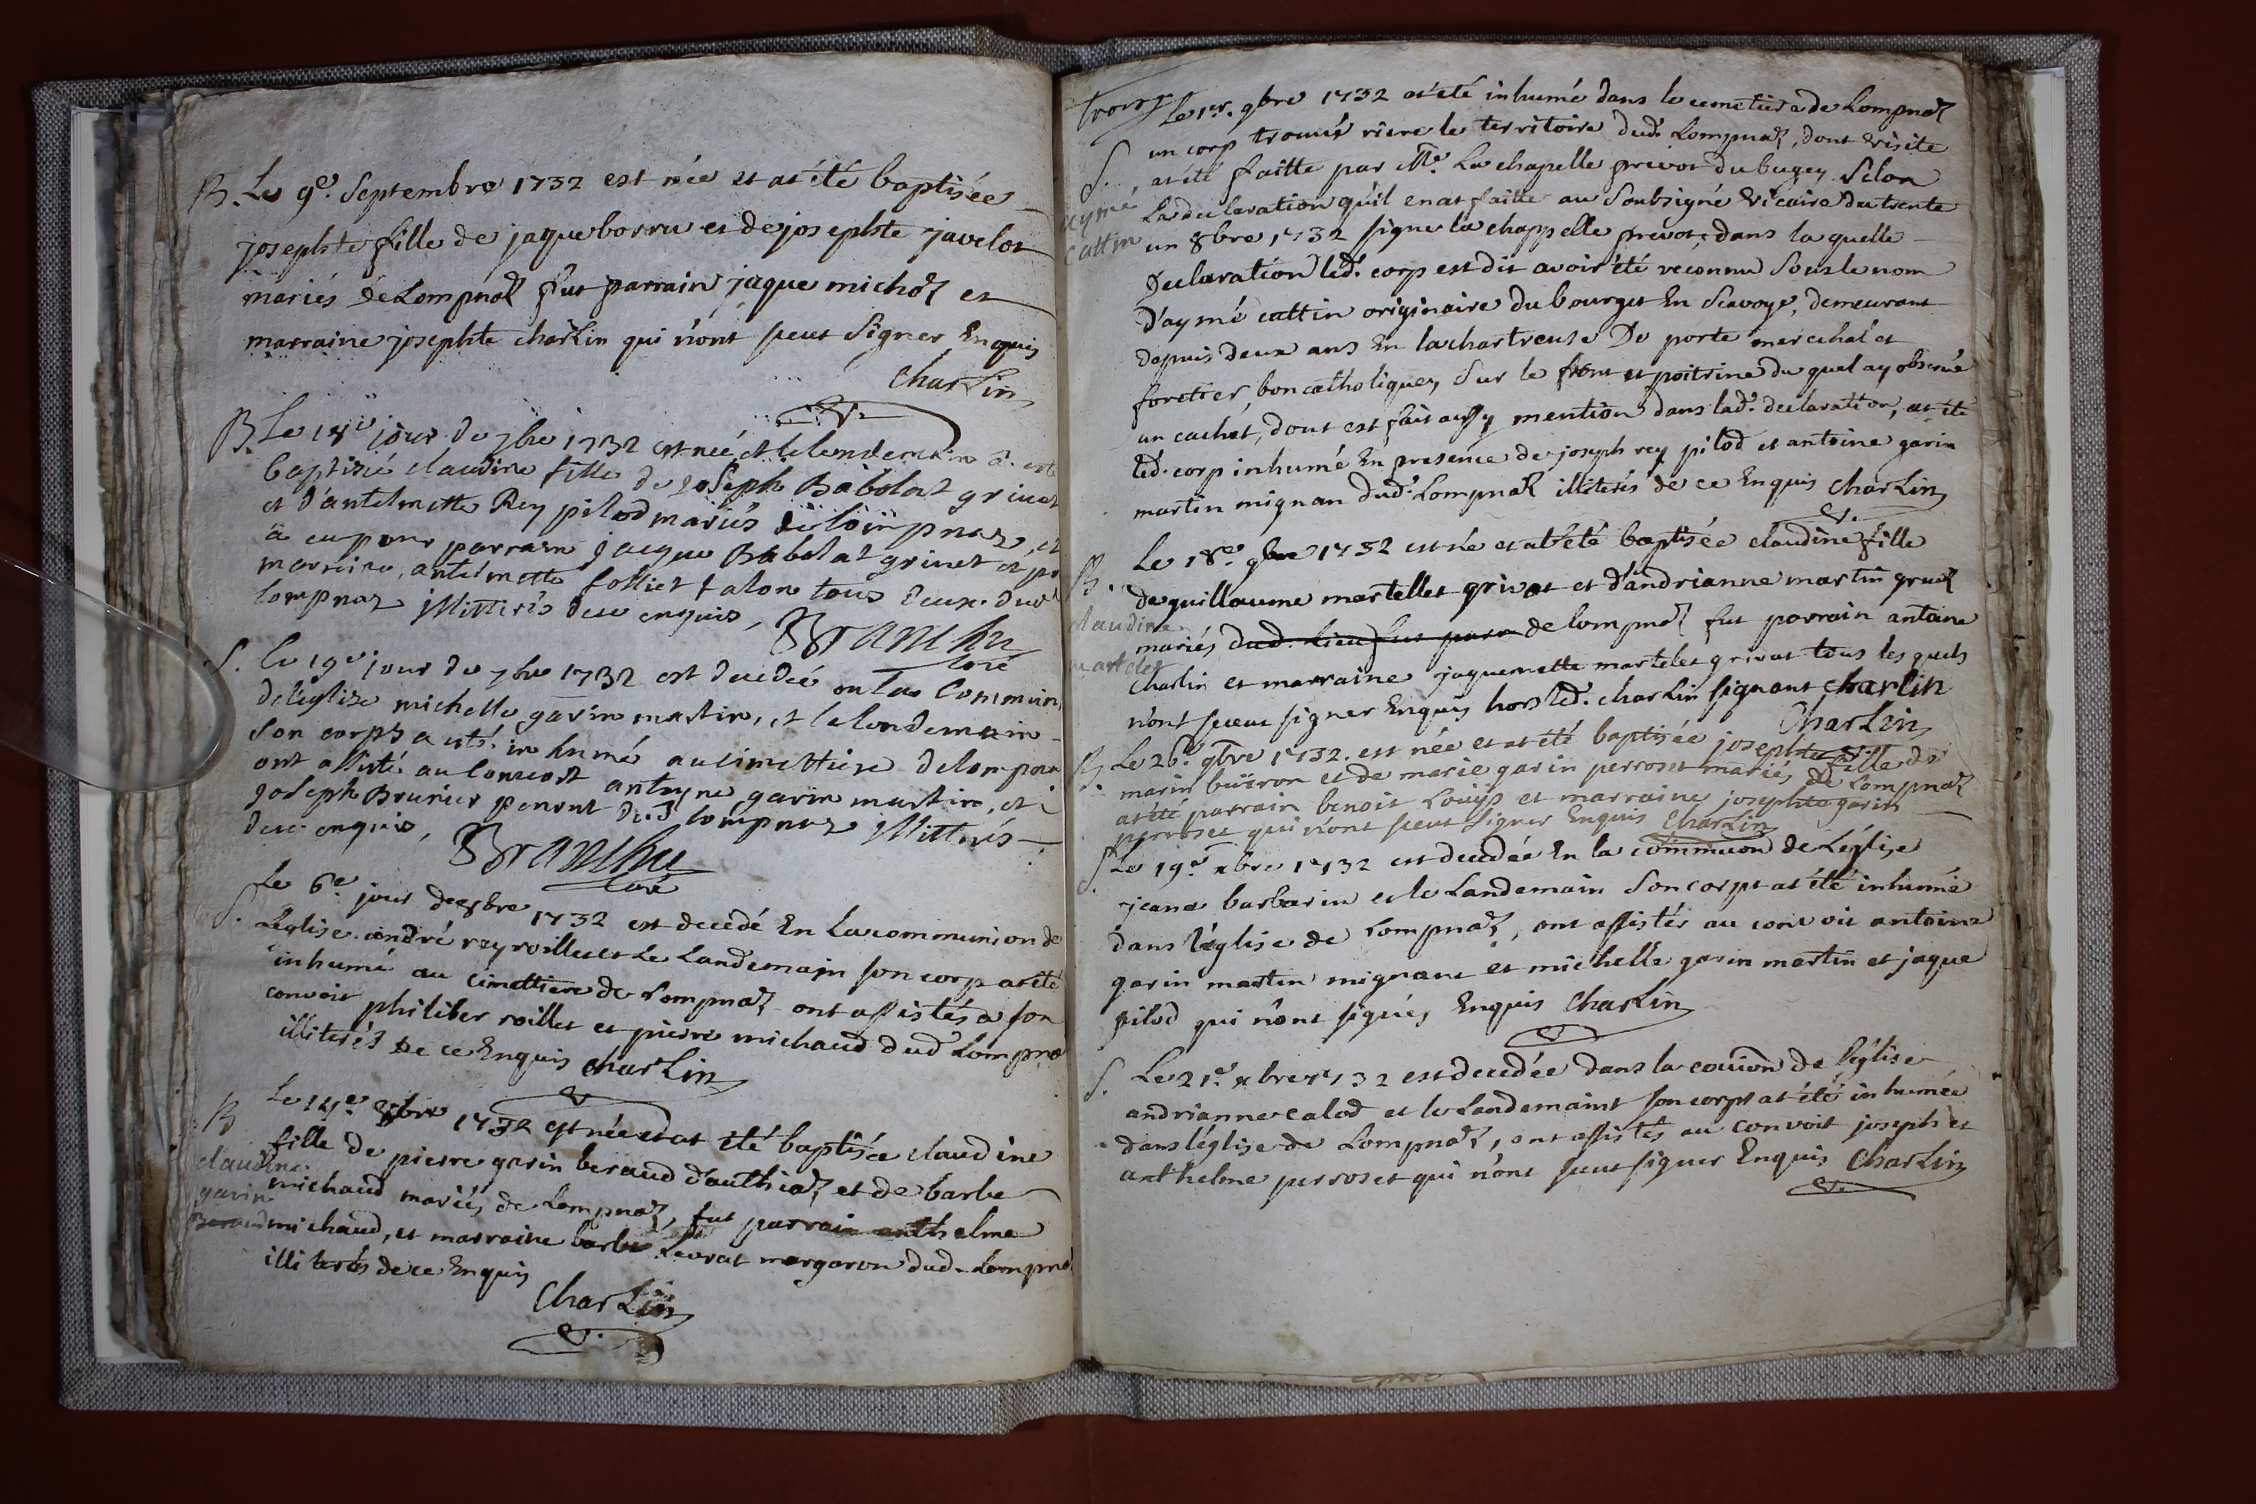 B. Le 9e. Septembre 1732 est née et at été baptisée
josephte fille de jaque borru et de josephte javelot
mariés de Lompnaz fut parrain jaque michoz et
marraine josephte charlin qui n'ont sceut signer Enquis
Charlin
B. Le 18e jour de 7bre 1732 est née et le lendemain a esté
baptisée claudine fille de joseph Babolat grinet
et d'antelmette Rey pilod mariés de lompnaz, et
a eu pour parrain jacque Babolat grinet et pr
marraine, antelmette folliet talon tous deux dud
lompnaz illitterés de ce enquis,
Branthu
curé
S. Le 19e jour de 7bre 1732 est decedée en la Commun
de l'eglize michelle garin martin, et le lendemain
son corps a esté inhumé au cimettiere de lompna
ont assisté au convoit antoyne garin martin, et
Joseph Brunier penrut dud lompnaz illitterés
de ce enquis,
Branthu
curé
S. Le 6e jour de 8bre 1732 est decedé En La communion de
L'eglise andré rey roillet et Le Landemain son corp at été
inhumé au Cimettiere de Lompnaz ont assistés a son
convoit philiber roillet et pierre michaud dud Lompna
illiterés de ce Enquis Charlin
B Le 14e. 8bre 1732 est née et at été baptisée claudine
claudine
garin
Beraud
fille de pierre garin beraud d'authiaz et de barbe
michaud mariés de Lompnaz, fut parrain anthelme
michaud, et marraine barbe Levrat margaron dud. Lompna
illiterés de ce Enquis
Charlin
Le 1er. 9bre 1732 at été inhumé dans le cemetiere de Lompnaz
S. aymé
cattin
un corp trouvés riere le territoire dud. Lompnaz, dont visite
at été faitte par Me. La chapelle prevot du bugey Selon
La declaration qu'il en at faitte au Soubsigné vicaire du trente
un 8bre 1732 signe la chappelle prevot, dans la quelle
declaration led. corp est dit avoir été reconnu Sous le nom
d'aymé cattin originaire du bourget En Savoye, demeurant
depuis deux ans En la chartreuse De porte marechal et
foretier, bon catholique, Sur le front et poitrine du quel ay observé
un cachet, dont est fait aussy mention dans lad. declaration, at été
led. corp inhumé En presence de joseph rey pilod et antoine garin
martin mignan dud. Lompnaz illiterés de ce Enquis Charlin
B. Le 18e. 9bre 1732 est né et at été baptisée claudine fille
claudine
martelet
de guillaume martellet grivat et d'andrianne martin gruaz
mariés dud. Lieu fut parr de lompnaz fut parrain antoine
Charlin et marraine jaquemette martelet grivat tous les quels
n'ont sceut signer Enquis hors led. charlin signant charlin
Charlin
B. Le 26e. 9bre 1732. est née et at été baptisée josephte fille de
marin buiron et de marie garin perroset mariés de Lompnaz
at été parrain benoit Louys et marraine josephte garin
perroset qui n'ont sceut signer Enquis Charlin
S. Le 19e xbre 1732 est decedée En la communion de L'église
jeane barbarin et le Landemain Son corps at été inhumé
dans l'église de Lompnaz, ont assistés au convoit antoine
garin martin mignant et michelle garin martin et jaque
pilod qui n'ont signés Enquis Charlin
S. Le 21e. xbre 1732 est decedée dans la couion de l'église
andrianne calod et le Landemaint son corps at été inhumée
dans l'église de Lompnaz, ont assistés au convoit joseph et
anthelme perroset qui n'ont sceut signer Enquis Charlin